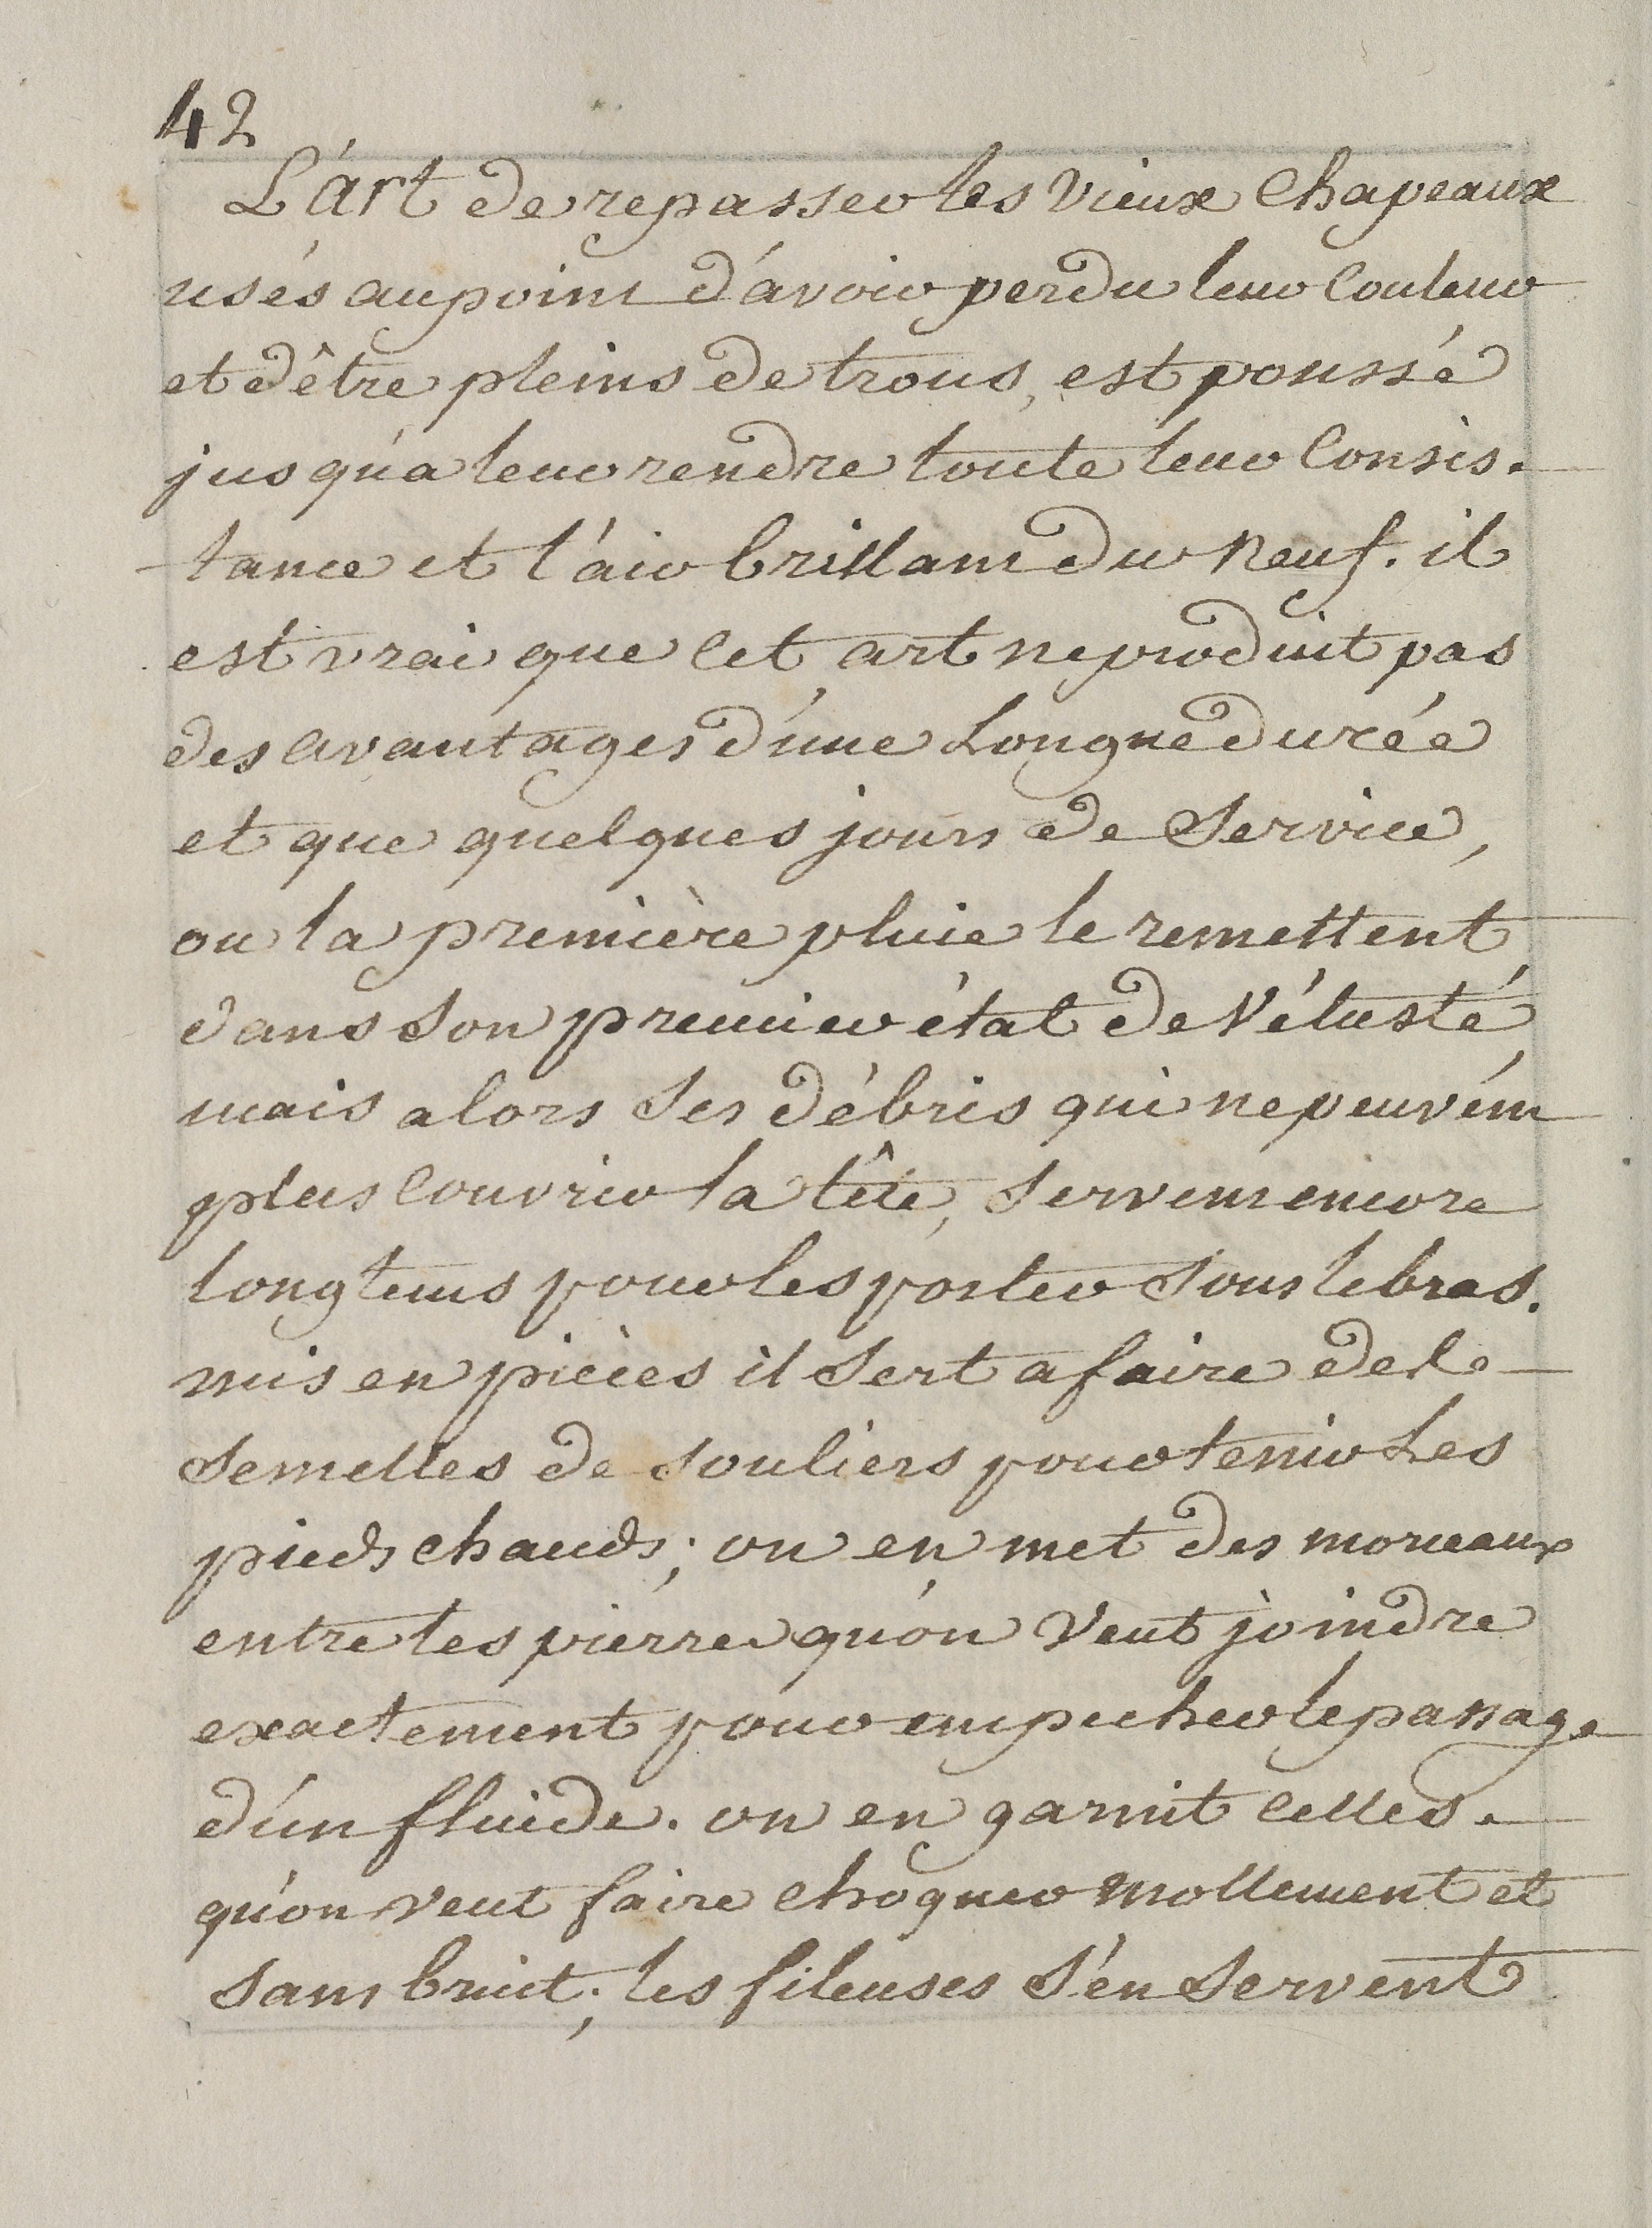 42
L'art de repasser les vieux Chapeaux
usés au point d'avoir perdu leur Couleur
et d'être pleins de trous, est poussé
jusqu'a leur rendre toute leur Consis-
tance et l'air brillant du neuf. il
est vrai que Cet art ne produit pas
des avantages d'une Longue durée
et que quelques jours de Service,
ou la première pluie le remettent
dans Son premier état de Vétusté,
mais alors Ses débris qui ne peuvent
plus Couvrir la tête, Servent encore
longtems pour les porter Sous le bras.
mis en pièces il Sert a faire de
Semelles de Souliers pour tenir Les
pieds chauds; on en met des morceaux
entre les pierres qu'on Veut joindre
exactement pour empecher le passage
d'un fluide. on en garnit Celles
qu'on veut faire Choquer mollement et
Sans bruit; les fileuses S'en Servent